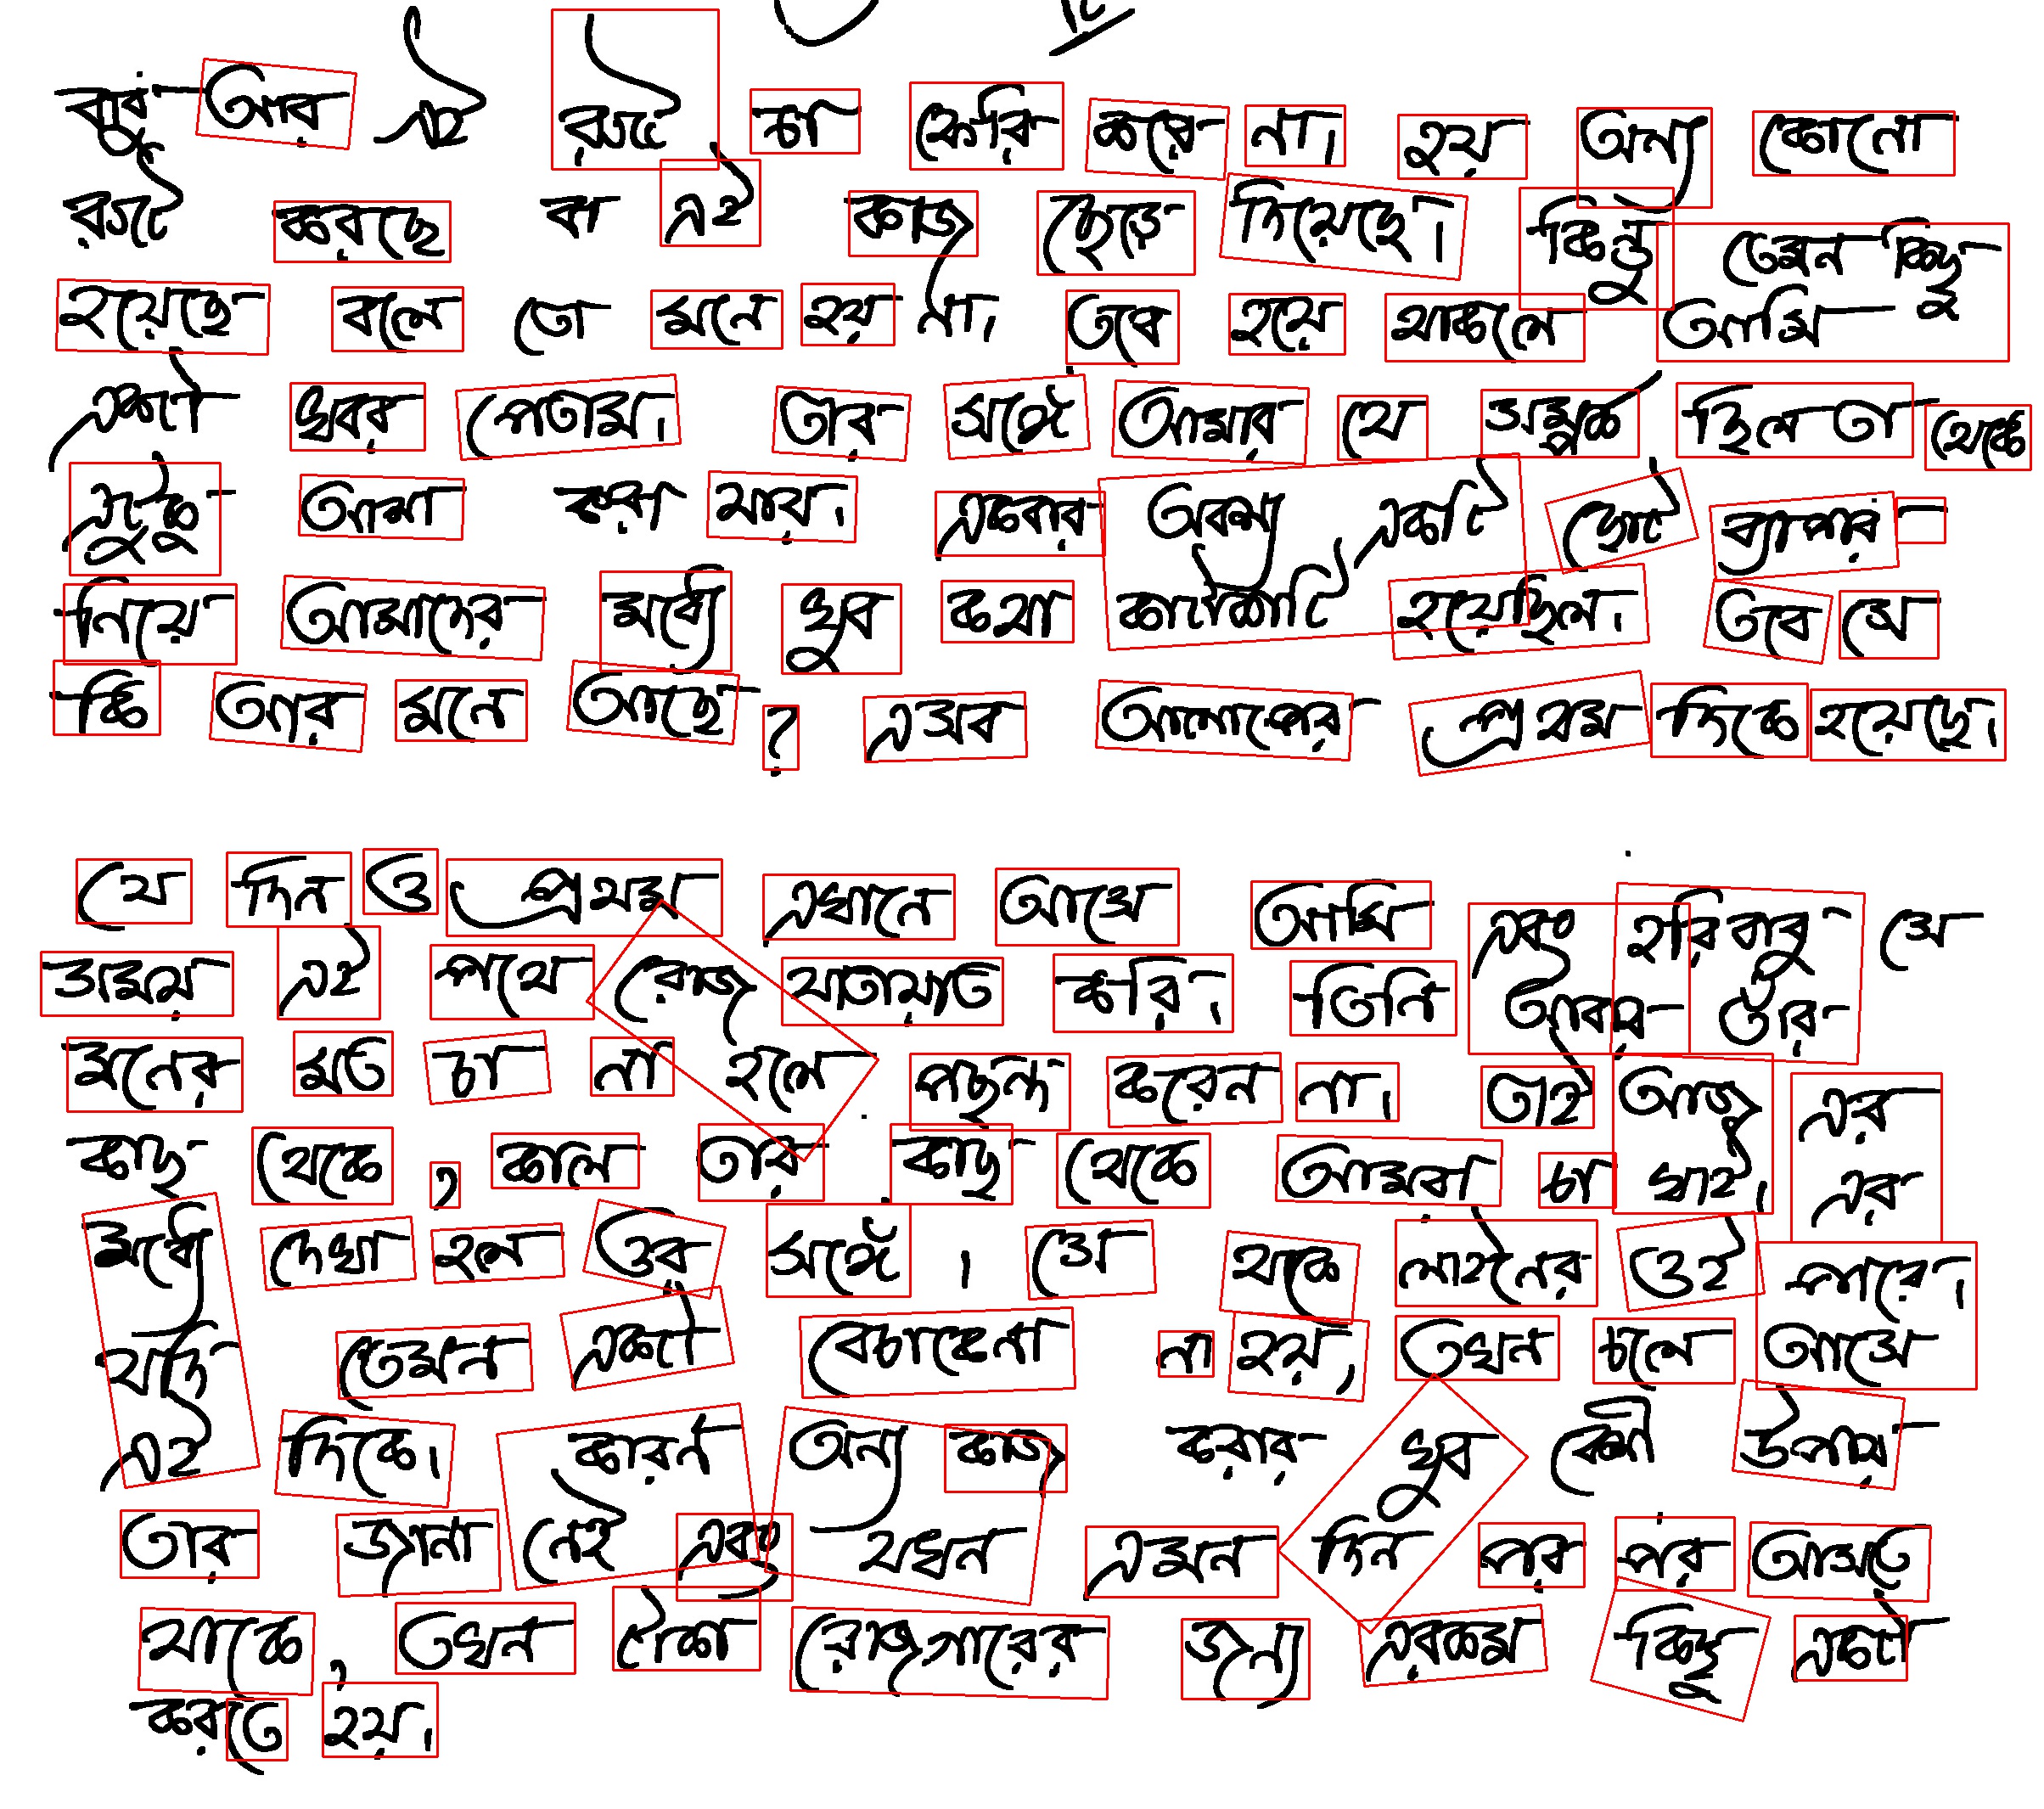 বাবু আর এই রুটে চা ফেরি করে না। হয় অন্য কোনো
রুটে করছে বা এই কাজ ছেড়ে দিয়েছে। কিন্তু তেমন কিছু
হয়েছে বলে তো মনে হয় না। তবে হয়ে থাকলে আমি
একটা খবর পেতাম। তার সঙ্গে আমার যে সম্পর্ক ছিল তা থেকে
এটুকু আশা করা যায়। একবার অবশ্য একটি ছোট ব্যাপার
নিয়ে আমাদের মধ্যে খুব কথা কাটাকাটি হয়েছিল। তবে সে
কি তার মনে আছে ? এসব আলাপের প্রথম দিকে হয়েছে।
যে দিন ও প্রথম এখানে আসে আমি এবং হরিবাবু সে
সময় এই পথে রোজ যাতায়াত করি। তিনি আবার তাঁর
মনের মত চা না হলে পছন্দ করেন না। তাই আজ এর
কাছ থেকে , কাল তার কাছ থেকে আমরা চা খাই। এর
মধ্যে দেখা হল ওর সঙ্গে । সে থাকে লাইনের ওই পারে।
যদি তেমন একটা বেচাকেনা না হয়, তখন চলে আসে
এই দিকে। কারন অন্য কাজ করার খুব বেশী উপায়
তার জানা নেই এবং যখন এমন দিন পর পর আসতে
থাকে , তখন পেশা রোজগারের জন্য এরকম কিছু একটা
করতে হয়।